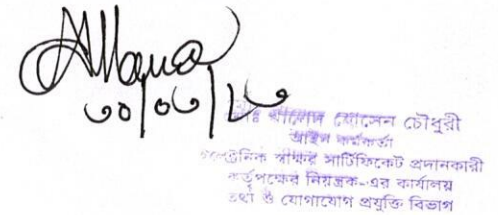 ৩০/০৩/১৬
মোঃ খালেদ হোসেন চৌধুরী
আইন কর্মকর্তা
ইলেক্ট্রনিক স্বাক্ষর সার্টিফিকেট প্রদানকারী
কর্তৃপক্ষের নিয়ন্ত্রক-এর কার্যালয়
তথ্য ও যোগাযোগ প্রযুক্তি বিভাগ